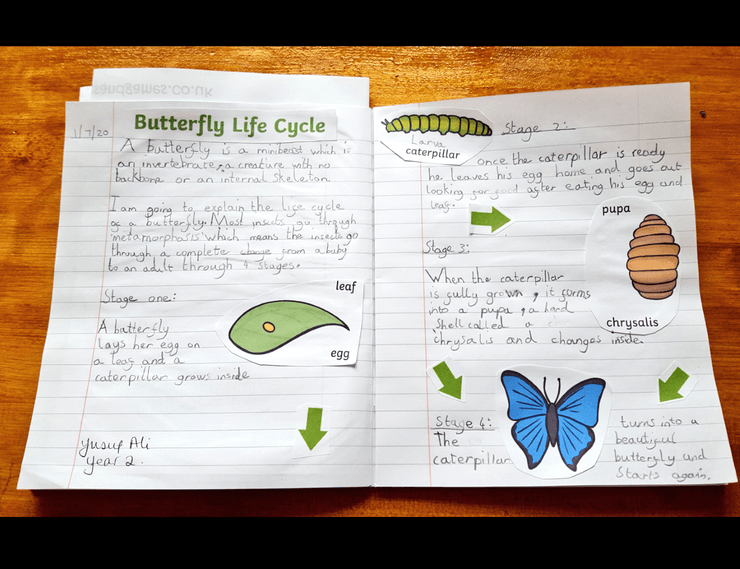 sandgames.co.uk
1/7/20
Butterfly Life Cycle
A butterfly is a minibeast which is
an invertebrate, a creature with no
backbone or an internal skeleton.
I am going to explain the life cycle
of a butterfly. Most insects go through
metamorphosis which means the insects go
through a complete change from a baby
to an adult through 4 stages.
Stage one:
leaf
egg
A butterfly
lays her egg on
a leaf and a
caterpillar grows inside
Yusuf Ali
Year 2.
Larva
caterpillar
Stage 2:
once the caterpillar is ready
he leaves his egg home and goes out
looking for food after eating his egg and
leaf.
pupa
chrysalis
Stage 3:
When the caterpillar
is fully grown, it forms
into a pupa, a hard
shell called a
chrysalis and changes inside.
Stage 4:
The
caterpillar
turns into a
beautiful
butterfly and
starts again.